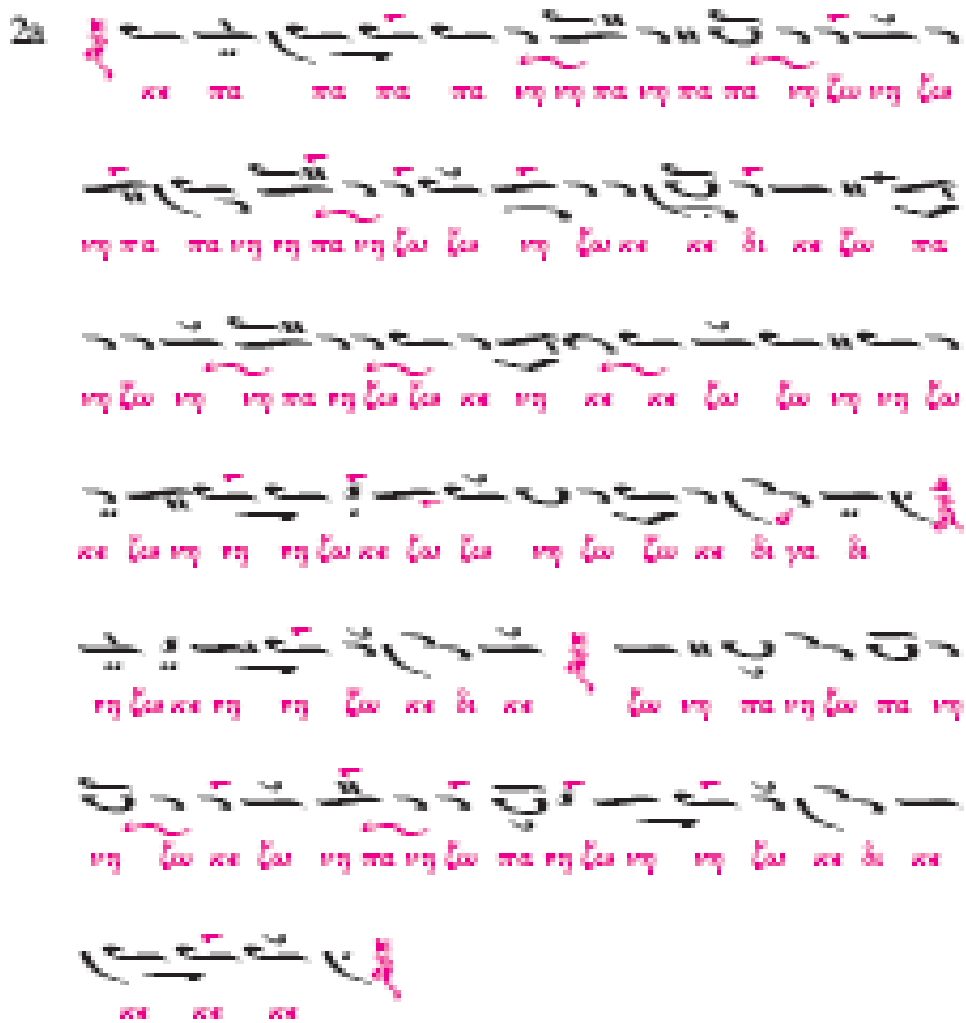 28
κε πα πα πα πα νη νη πα νη πα πα νη ζω νη ζω
νη πα πα νη νη πα νη ζω ζω νη ζω κε κε δι κε ζω πα
νη ζω νη νη πα νη ζω ζω κε νη κε κε ζω ζω νη νη ζω
κε ζω νη νη νη ζω κε ζω ζω νη ζω ζω κε δι γα δι
νη ζω κε νη νη ζω κε δι κε ζω νη πα νη ζω πα νη
νη ζω κε ζω νη πα νη ζω πα νη ζω νη νη ζω κε δι κε
κε κε κε